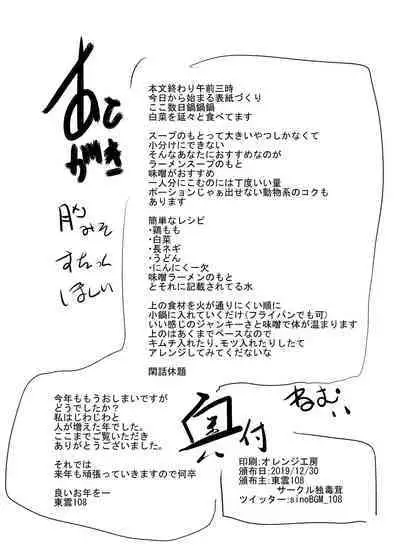 あとがき
本文終わり午前三時
今日から始まる表紙づくり
ここ数日鍋鍋鍋
白菜を延々と食べてます
スープのもとって大きいやつしかなくて
小分けにできない
そんなあなたにおすすめなのが
ラーメンスープのもと
味噌がおすすめ
一人分にこむのには丁度いい量
ポーションじゃぁ出せない動物系のコクも
あります
簡単なレシピ
・鶏もも
・白菜
・長ネギ
・うどん
・にんにく一欠
味噌ラーメンのもと
とそれに記載されてる水
上の食材を火が通りにくい順に
小鍋に入れていくだけ(フライパンでも可)
いい感じのジャンキーさと味噌で体が温まります
上のはあくまでベースなので
キムチ入れたり、モツ入れたりしたて
アレンジしてみてくだないな
閑話休題
脳みそ
すちっく
ほしい
今年ももうおしまいですが
どうでしたか?
私はじわじわと
人が増えた年でした。
ここまでご覧いただき
ありがとうございました。
それでは
来年も頑張っていきますので何卒
良いお年をー
東雲108
ねむい
奥付
印刷:オレンジ工房
頒布日:2019/12/30
頒布主:東雲108
サークル独毒茸
ツイッター:sinoBGM_108